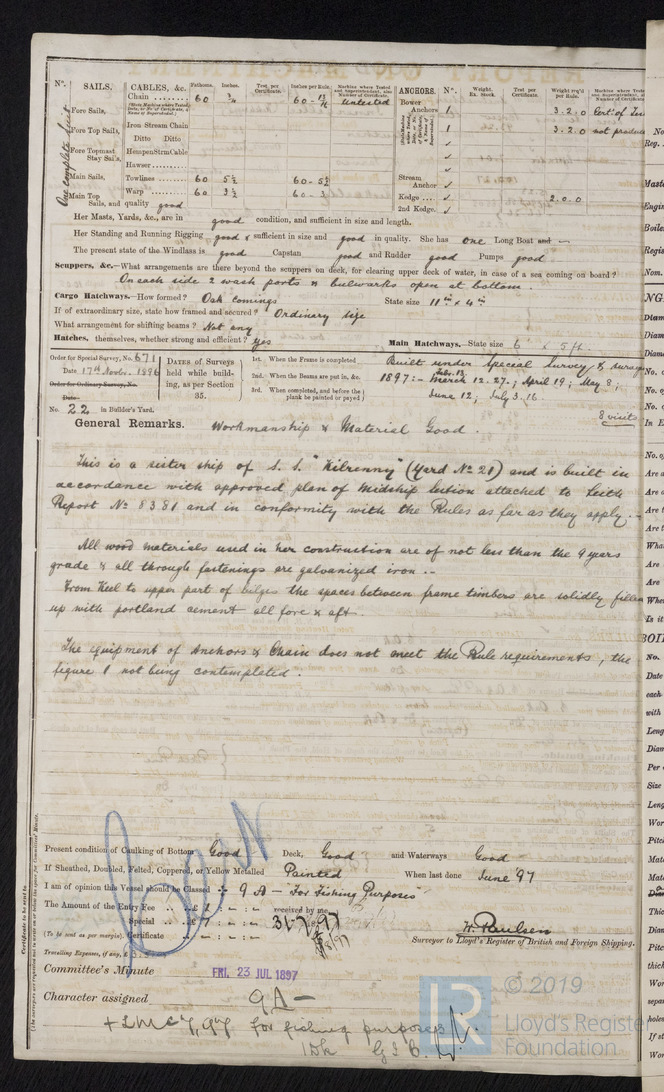 Nº. SAILS. CABLES, &c. Fathoms. Inches. Test, per Certificate. Inches per Rule. ANCHORS. Nº. Weight. Ex. Stock. Test per Certificate. Weight req'd per Rule.
Chain 60 3/4 60 - Untested Bower Anchors 1. 3.2.0
Fore Sails, Iron Stream Chain 1. 3.2.0 not produced
Fore Top Sails, Ditto Ditto
Fore Topmast Stay Sails, Hempen Strm Cable
Hawser
One complete suit
Main Sails, Towlines 60 5½ 60 - 5½ Stream Anchor
Main Top Sails, and quality good Warp 60 3½ 60 - 3 Kedge 2.0.0
2nd Kedge.
Her Masts, Yards, &c., are in good condition, and sufficient in size and length.
Her Standing and Running Rigging good & sufficient in size and good in quality. She has one Long Boat and —
The present state of the Windlass is good Capstan good and Rudder good Pumps good
Scuppers, &c.—What arrangements are there beyond the scuppers on deck, for clearing upper deck of water, in case of a sea coming on board?
On each side 2 wash ports & bulwarks open at bottom.
Cargo Hatchways.—How formed? Oak comings State size 11 in x 4 in
If of extraordinary size, state how framed and secured? Ordinary size
What arrangement for shifting beams? Not any
Hatches, themselves, whether strong and efficient? yes Main Hatchways.—State size 6' x 5 ft.
Order for Special Survey, No. 671
Date 17th Novbr. 1896
Order for Ordinary Survey, No.
Date
No. 22 in Builder's Yard.
DATES of Surveys held while building, as per Section 35.
1st. When the Frame is completed
2nd. When the Beams are put in, &c.
3rd. When completed, and before the plank be painted or payed
Built under Special Survey &
1897:- Febr. 13. March 12. 27.; April 19; May 8;
June 12; July 3. 16.
8 visits
General Remarks. Workmanship & Material Good.
This is a sister ship of S. S. "Kilrenny" (Yard Nº 21) and is built in
accordance with approved plan of Midship Section attached to Leith
Report Nº 8381 and in conformity with the Rules as far as they apply.
All wood materials used in her construction are of not less than the 9 years
grade & all through fastenings are galvanized iron.
From Keel to upper part of bilges the spaces between frame timbers are solidly filled
up with portland cement all fore & aft.
The equipment of Anchors & Chain does not meet the Rule requirements, the
figure 1 not being contemplated.
Present condition of Caulking of Bottom Good Deck, Good and Waterways Good
If Sheathed, Doubled, Felted, Coppered, or Yellow Metalled Painted When last done June '97
I am of opinion this Vessel should be Classed 9 A - "For Fishing Purposes"
The Amount of the Entry Fee £ received by me,
Special £ 31/7/97
(To be sent as per margin). Certificate
W. Paulsen
Surveyor to Lloyd's Register of British and Foreign Shipping.
Travelling Expenses, (if any, £
Committee's Minute FRI. 23 JUL 1897
Character assigned 9A -
+ LMC 7,97 for fishing purposes
1Dk
© 2019
Lloyd's Register
Foundation